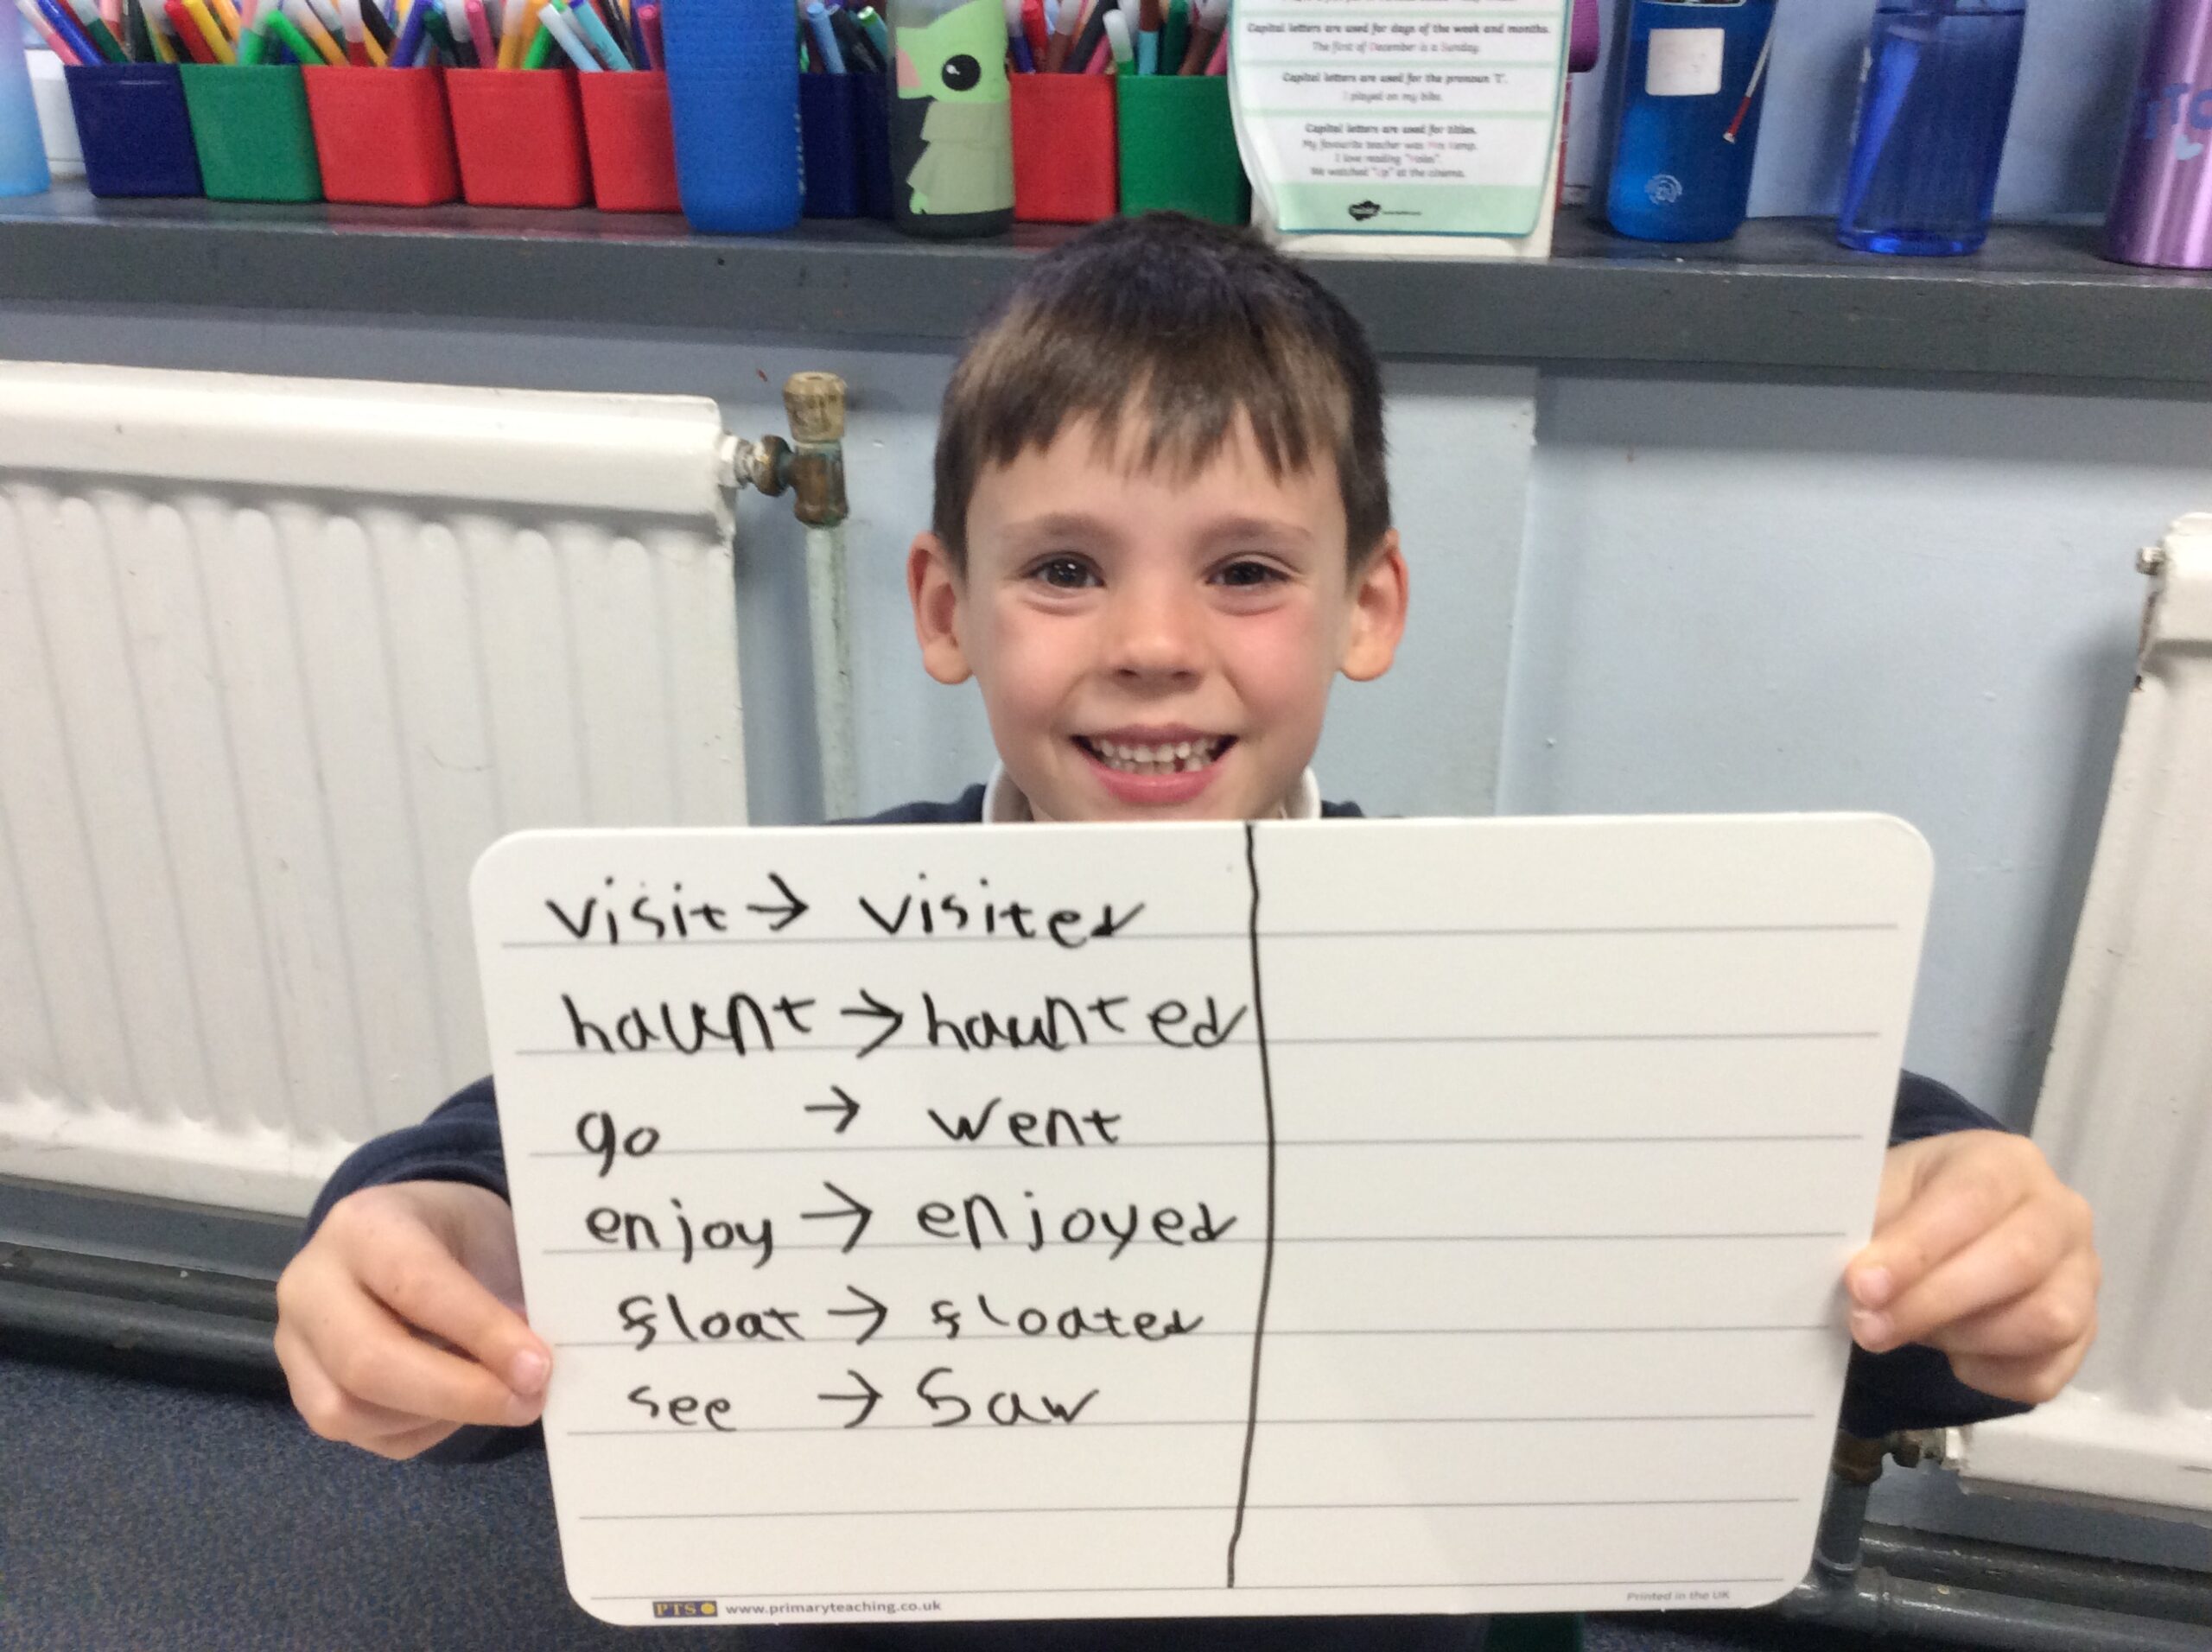 Capital letters are used for days of the week and months.
The first of December is a Sunday.
Capital letters are used for the pronoun 'I'.
I played on my bike.
Capital letters are used for titles.
My favourite teacher was Mrs Kemp.
I love reading
We watched "Up" at the cinema.
visit → visited
haunt → haunted
go → went
enjoy → enjoyed
float → floated
see → saw
PTS www.primaryteaching.co.uk
Printed in the UK